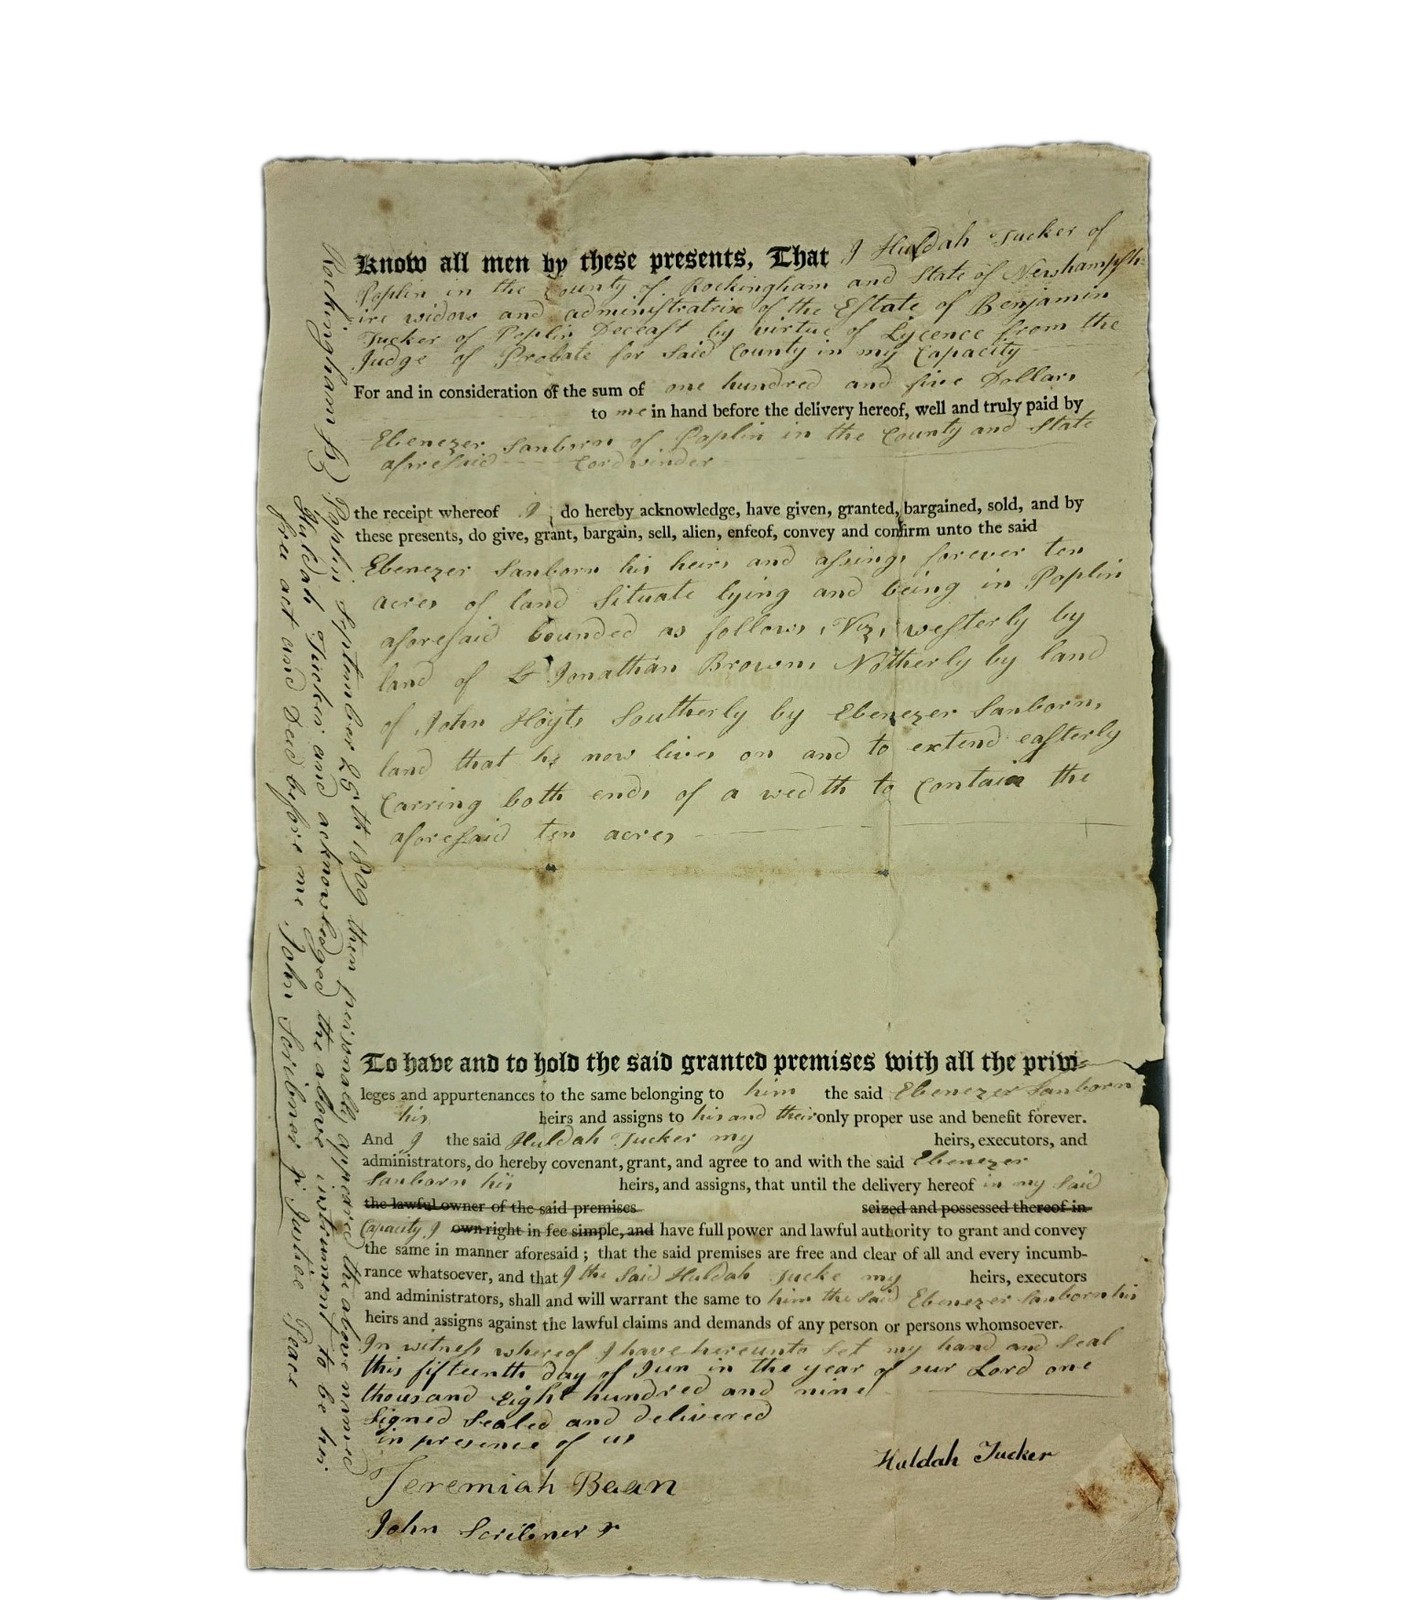 Know all men by these presents, That I Huldah Tucker of
Poplin in the County of Rockingham and State of Newhampsh-
ire widow and administratrix of the Estate of Benjamin
Tucker of Poplin Deceast by virtue of Lycence from the
Judge of Probate for Said County in my Capacity
For and in consideration of the sum of one hundred and five Dollars
to me in hand before the delivery hereof, well and truly paid by
Ebenezer Sanborn of Poplin in the County and State
aforesaid Cordwinder
the receipt whereof I do hereby acknowledge, have given, granted, bargained, sold, and by
these presents, do give, grant, bargain, sell, alien, enfeof, convey and confirm unto the said
Ebenezer Sanborn his heirs and assings forever ten
acres of land Situate lying and being in Poplin
aforesaid bounded as follows, Viz, westerly by
land of Lt Jonathan Browns Notherly by land
of John Hoyts Southerly by Ebenezer Sanborns
land that he now lives on and to extend easterly
Carring both ends of a wedth to Contain the
aforesaid ten acres
To have and to hold the said granted premises with all the privi-
leges and appurtenances to the same belonging to him the said Ebenezer Sanborn
his heirs and assigns to his and their only proper use and benefit forever.
And I the said Huldah Tucker my heirs, executors, and
administrators, do hereby covenant, grant, and agree to and with the said Ebenezer
Sanborn his heirs, and assigns, that until the delivery hereof in my Said
the lawful owner of the said premises seized and possessed thereof in
Capacity I own right in fee simple, and have full power and lawful authority to grant and convey
the same in manner aforesaid ; that the said premises are free and clear of all and every incumb-
rance whatsoever, and that I the Said Huldah Tucke my heirs, executors
and administrators, shall and will warrant the same to him the Said Ebenezer Sanborn his
heirs and assigns against the lawful claims and demands of any person or persons whomsoever.
In witness whereof I have hereunto Set my hand and Seal
this fifteenth day of Jun in the year of our Lord one
thousand Eight hundred and nine
Signed Sealed and delivered
in presence of us
Jeremiah Bean
John Scribner Jr
Huldah Tucker
Rockingham Ss) Poplin Septenber 25th 1809 then personally appeared the above named
Huldah Tucker and acknowledged the above instrument to be hir
free act and Deed before me John Scribner Jr Justice Peace